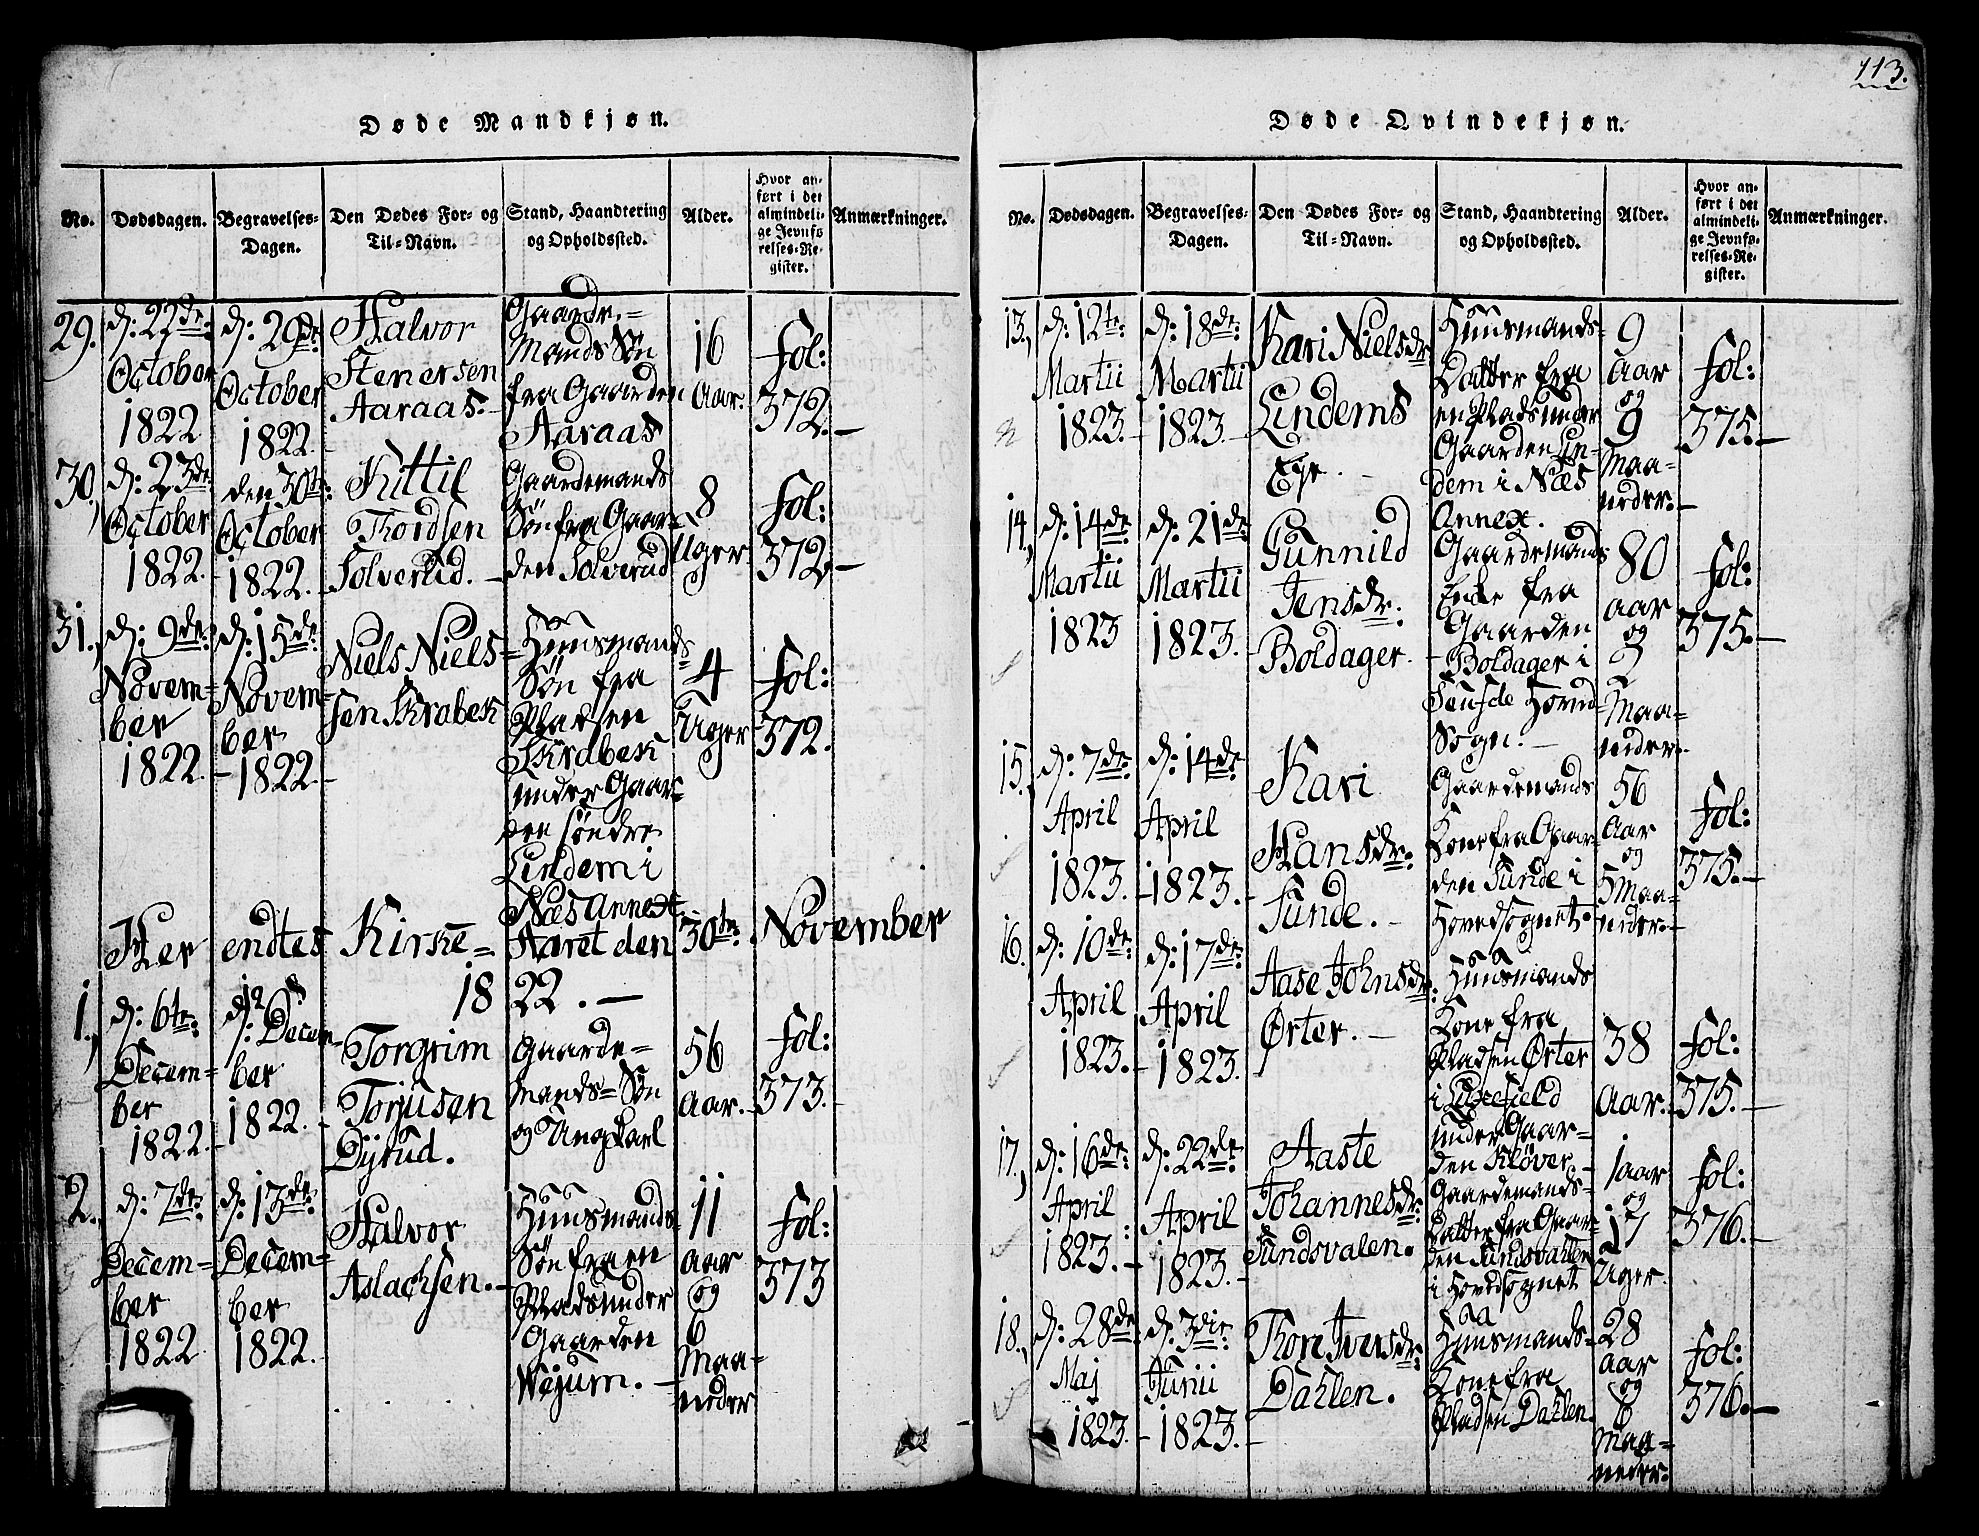 113.
Døde Mandkjøn.
No. Dødsdagen. Begravelses-Dagen. Den Dødes For- og Til-Navn. Stand, Haandtering og Opholdssted. Alder. Hvor anført i det almindelige Jevnførelses-Register. Anmærkninger.
29.
d: 22de:
October
1822
d: 29de:
October
1822.
Halvor
Stenersen
Aaraas.
Gaarde=
Mands Søn
fra Gaarden
Aaraas
16
Aar.
Fol:
372.
30,
d: 23de:
October
1822.
den 30te:
October
1822.
Kittil
Thordsen
Solverud.
Gaardemands
Søn fra Gaar-
den Solverud
8
Uger
Fol:
372.
31.,
d: 9de:
Novem=
ber
1822.
d: 15de:
Novem=
ber
1822.
Niels Niels=
sen Skrabek
Huusmands
Søn fra
Pladsen
Skrabek
under Gaar=
den søndre
Lindem i
Næs Annext
4
Uger
Fol:
372.
Her endtes Kirke= Aaret den 30te: November
1822.
1.,
d: 6te:
Decem=
ber
1822.
d: 12
Decem=
ber
1822.
Torgrim
Torjusen
Dyrud.
Gaarde=
mands=Søn
og Ungkarl
56
Aar.
Fol:
373.
2.,
d: 7de:
Decem=
ber
1822
d: 13de:
Decem=
ber
1822.
Halvor
Aslachsen.
Huusmands
Søn fra en
Plads under
Gaarden
Wejum.
11
aar
og
6
Maa=
neder
Fol:
373
Døde Qvindekjøn.
No. Dødsdagen. Begravelses-Dagen. Den Dødes For- og Til-Navn. Stand, Haandtering og Opholdssted. Alder. Hvor anført i det almindelige Jevnførelses-Register. Anmærkninger.
13.,
d: 12te:
Martii
1823.
d: 18de:
Martii
1823.
Kari Nielsdr
Lindems
Eje.
Huusmands=
Datter fra
en Plads under
Gaarden Lin=
dem i Næs
Annext.
9
Aar
og
9
Maa=
neder.
Fol:
375.
14.,
d: 14de
Martii
1823
d: 21de
Martii
1823.
Gunnild
Jensdr:
Boldager.
Gaardemands
Enke fra
Gaarden
Boldager i
Hoved=
Sogn.
80
aar
og
9
Maa=
neder.
Fol:
375.
15.,
d: 7de:
April
1823.
d: 14de:
April
1823.
Kari
Hansdr:
Sunde.
Gaardemands
Kone fra Gaar-
den Sunde i
Hovedsognet.
56
Aar
og
5 Maa=
neder.
Fol:
375.
16.
d: 10de:
April
1823.
d: 17de:
April
1823.
Aase Johnsdr:
Ørter.
Huusmands
Kone fra
Pladsen Ørter
i Lixefield
under Gaar=
den Kløver
38
Aar.
Fol:
375.
17.,
d: 16de:
April
1823.
d: 22de:
April
1823.
Aaste
Johannesdr:
Sundsvalen.
Gaardemands=
Datter fra Gaar=
den Sundsvahlen
i Hovedsognet
1 aar
og
17
Uger.
Fol:
376.
18.,
d: 28de
Maj
1823.
d: 3die:
Junii
1823.
Thore Iversdr:
Dahlen.
Huusmands=
Kone fra
Pladsen Dahlen.
28
aar
og
6
Maa=
neder.
Fol:
376.